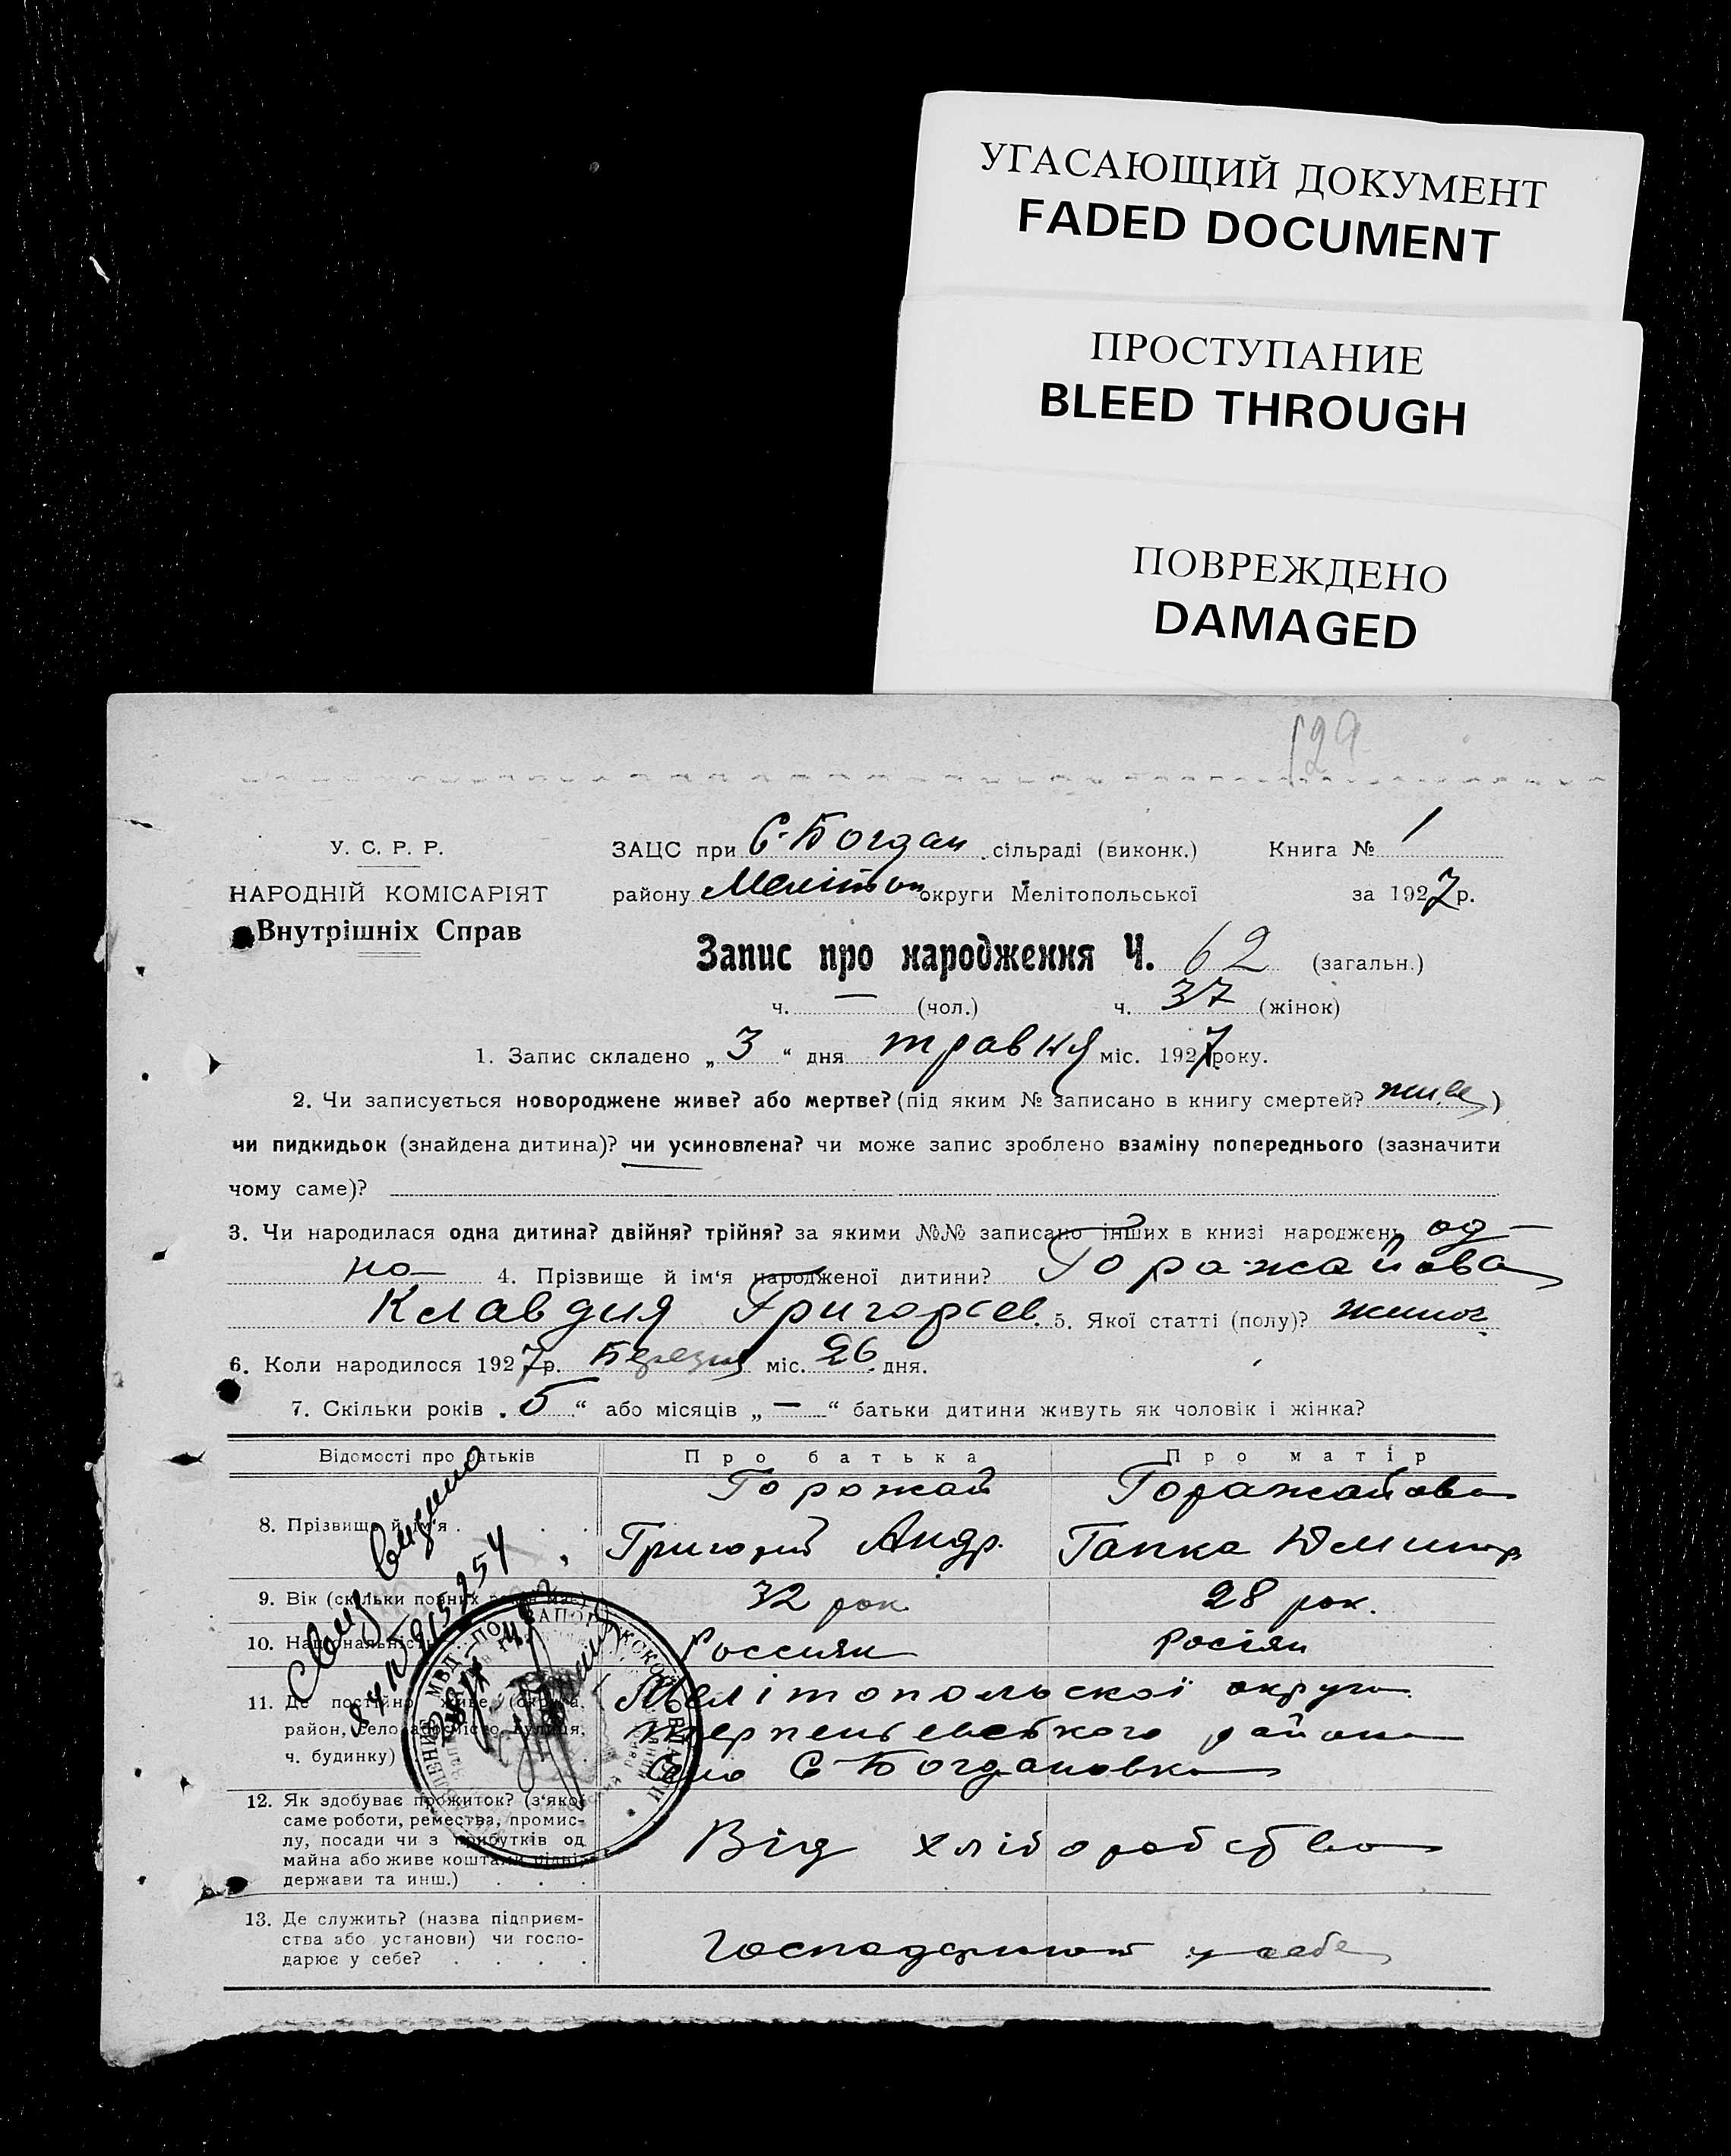 УГАСАЮЩИЙ ДОКУМЕНТ
FADED DOCUMENT
ПРОСТУПАНИЕ
BLEED THROUGH
ПОВРЕЖДЕНО
DAMAGED
129
У. С. Р. Р.
НАРОДНІЙ КОМІСАРІЯТ
Внутрішніх Справ
ЗАЦС при С-Богдан сільраді (виконк.) Книга № 1
району Меліто округи Мелітопольської за 1927 р.
Запис про народження Ч. 62 (загальн.)
ч. — (чол.) ч. 37 (жінок)
1. Запис складено „ 3 “ дня травня міс. 1927 року.
2. Чи записується новороджене живе? або мертве? (під яким № записано в книгу смертей? живе)
чи пидкидьок (знайдена дитина)? чи усиновлена? чи може запис зроблено взаміну попереднього (зазначити
чому саме)?
3. Чи народилася одна дитина? двійня? трійня? за якими №№ записано інших в книзі народжень од—
на 4. Прізвище й ім‘я народженої дитини? Горажайова
Клавдия Григорьев. 5. Якої статті (полу)? жиноч
6. Коли народилося 1927 р. Березня міс. 26 дня.
7. Скільки років „ 5 “ або місяців „ — “ батьки дитини живуть як чоловік і жінка?
Відомості про батьків
Про батька
Про матір
8. Прізвище й ім‘я . . .
Горожай
Григорий Андр.
Горажайова
Гапка
9. Вік (скільки повних років має)
32 рок.
28 рок.
10. Національність
Россиян
Росіян
11. Де постійно живе (округа,
район, село або місто, вулиця,
ч. будинку)
Мелітопольскої округи
терпеньевського району
Село С-Богдановка
12. Як здобуває прожиток? (з‘якої
саме роботи, ремества, промис-
лу, посади чи з прибутків од
майна або живе коштами
держави та инш.) . . .
Від хліборобства
13. Де служить? (назва підприєм-
ства або установи) чи госпо-
дарює у себе? . . . .
Господарюют у себе